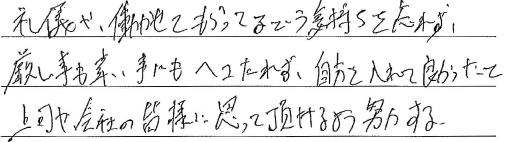 礼儀や、働かせてもらってるという気持ちを忘れず、
厳しい事も辛い事にもへこたれず、自分を入れて良かったって
上司や会社の皆様に思って頂けるよう努力する。